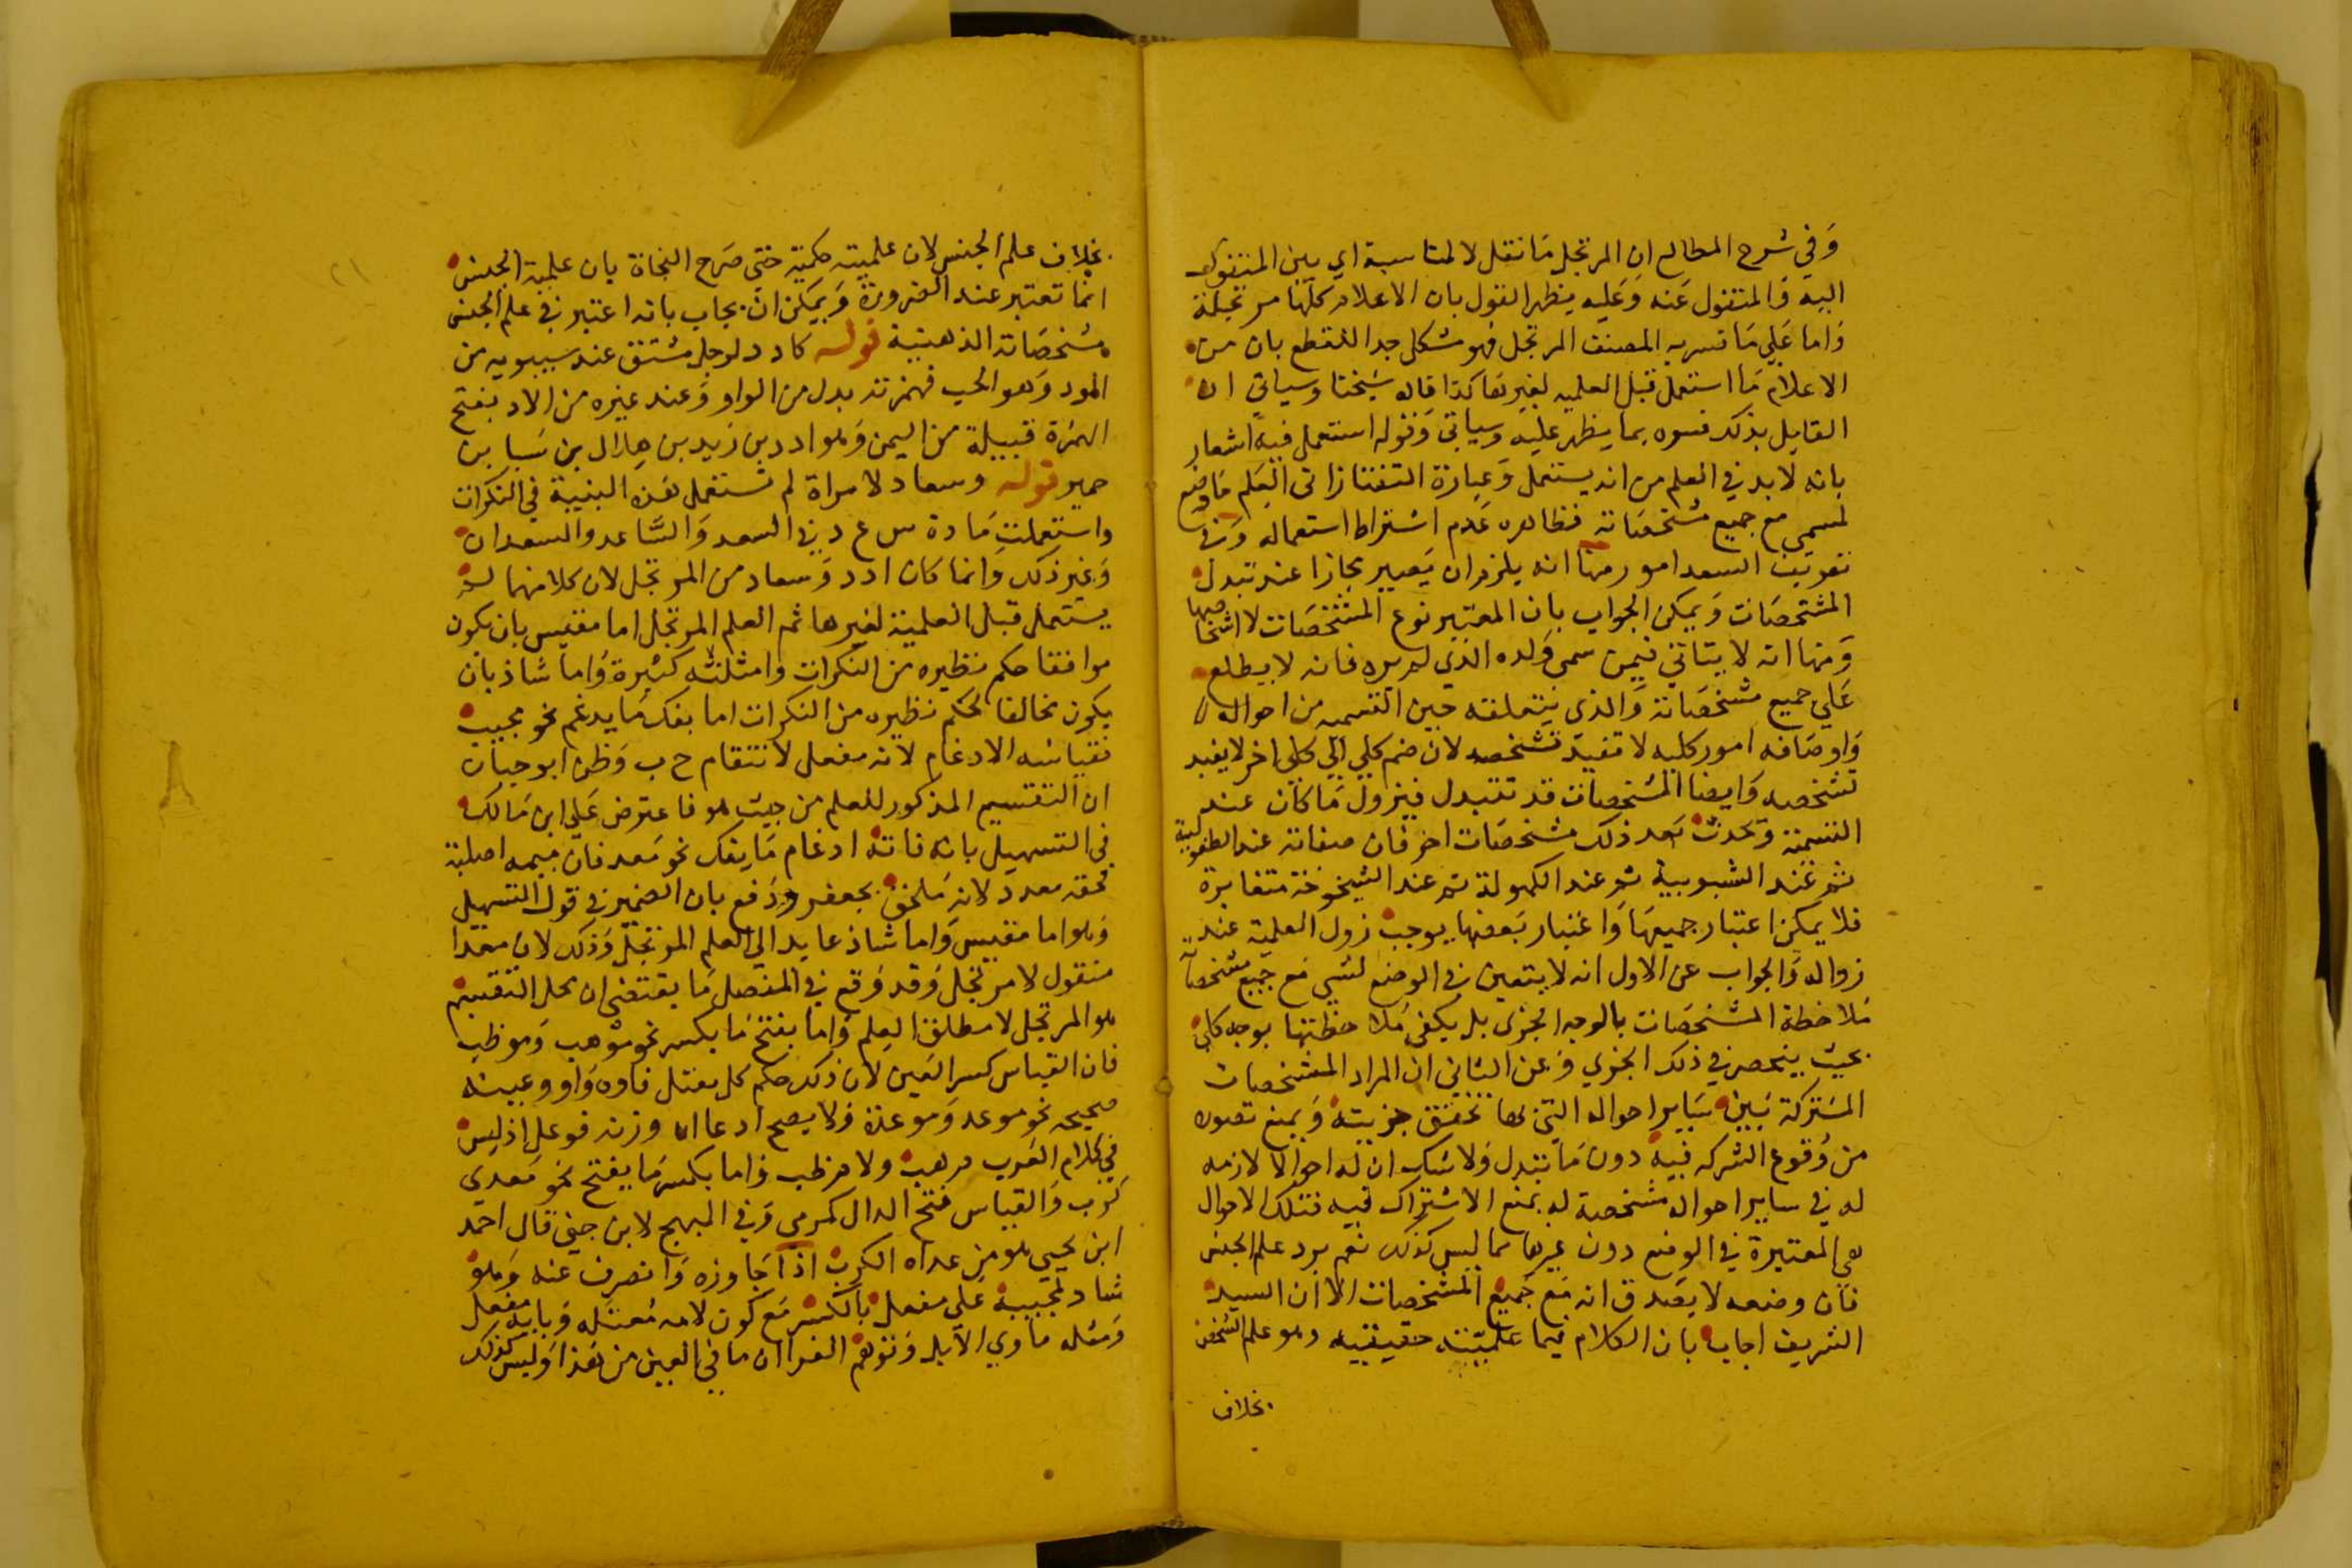 وفي شرح المطالع ان المرتجل ما نقل لا لمناسبة اي بين المنقول
اليه والمنقول عنه وعليه يظهر القول بان الاعلام كلها مرتجلة
واما علي ما فسر به المصنف المرتجل فهو مشكل جدا للقطع بان من
الاعلام ما استعمل قبل العلميه لغيرها كذا قاله شيخنا وسياتي ان
القايل بذلك فسره بما يظهر عليه وسياتي وقوله استعمل فيه اشعار
بانه لا بد في العلم من انه يستعمل وعبارة التفتازاني العلم ما وضع
لمسمي مع جميع مشخصاته فظاهره عدم اشتراط استعماله وفي
تعريف السعد امور منها انه يلزم ان يصير مجازا عند تبدل
المشخصات ويمكن الجواب بان المعتبر نوع المشخصات لا اشخاصها
ومنها انه لا يتاتي فيمن سمي ولده الذي لم يره فانه لا يطلع
علي جميع مشخصاته والذي يتعلقه حين التسميه من احواله
واوصافه امور كليه لا تفيد تشخصه لان ضم كلي الي كلي اخر لا يفيد
تشخصه وايضا المشخصات قد تتبدل فيزول ما كان عند
التسمية وتحدث بعد ذلك مشخصات اخر فان صفاته عند الطفولية
ثم عند الشبوبية ثم عند الكهولة ثم عند الشيخوخة متغايرة
فلا يمكن اعتبار جميعها واعتبار بعضها يوجب زول العلمية عند
زواله والجواب عن الاول انه لا يتعين في الوضع لشي مع جميع مشخصاته
ملاحظة المشخصات بالوجه الجزي بل يكفي ملاحظتها بوجه كلي
بحيث ينحصر في ذلك الجزي وعن الثاني ان المراد المشخصات
المشتركة بين ساير احواله التي بها تحقق جزيته ويمنع تصوره
من وقوع الشركه فيه دون ما يتبدل ولا شك ان له احوالا لازمه
له في ساير احواله مشخصة له بمنع الاشتراك فيه فتلك الاحوال
هي المعتبرة في الوضع دون غيرها مما ليس كذلك نعم يرد علم الجنس
فان وضعه لا يصدق انه مع جميع المشخصات الا ان السيد
الشريف اجاب بان الكلام فيما علميته حقيقيه وهو علم الشخص
بخلاف
٢١
بخلاف علم الجنس لان علميته حكمية حتي صرح النجاة بان علمية الجنس
انما تعتبر عند الضرورة ويمكن ان يجاب بانه اعتبر في علم الجنس
مشخصاته الذهنية قوله كادد لرجل مشتق عند سيبويه من
الود وهو الحب فهمزته بدل من الواو وعند غيره من الاد بفتح
الهمزة قبيلة من اليمن وهو ادد بن زيد بن هلال بن سبا بن
حمير قوله وسعاد لامراة لم تستعمل هذه البنية في النكرات
واستعملت مادة س ع د في السعد والساعد والسعدان
وغير ذلك وانما كان ادد وسعاد من المرتجل لان كلا منهما لم
يستعمل قبل العلمية لغيرها ثم العلم المرتجل اما مقيس بان يكون
موافقا حكم نظيره من النكرات وامثلته كثيرة واما شاذ بان
يكون مخالفا لحكم نظيره من النكرات اما بفك ما يدغم نحو محبب
فقياسه الادغام لانه مفعل لانتقام ح ب وظن ابو حيان
ان التقسيم المذكور للعلم من حيث هو فاعترض علي ابن مالك
في التسهيل بانه فاته ادغام ما يفك نحو معد فان ميمه اصلية
فحقه معدد لانه ملحق بجعفر ودفع بان الضمير في قول التسهيل
وهو اما مقيس واما شاذ عايد الي العلم المرتجل وذلك لان معدا
منقول لا مرتجل وقد وقع في المفصل ما يقتضي ان محل التقسيم
هو المرتجل لا مطلق العلم واما بفتح ما يكسر نحو موهب وموظب
فان القياس كسر العين لان ذلك حكم كل مفعل فاوه واو وعينه
صحيحه نحو موعد وموعدة ولا يصح ادعا ان وزنه فوعل اذ ليس
في كلام العرب مرهب ولا مرظب واما بكسر ما يفتح نحو معدي
كرب والقياس فتح الدال كمرمي وفي المبهج لابن جني قال احمد
ابن يحيي هو من عداه الكرب اذا جاوزه وانصرف عنه وهو
شاد لمجيبه علي مفعل بالكسر مع كون لامه معتله وبابه مفعل
ومثله ماوي الابل وتوهم الفرا ان ما في العين من هذا وليس كذلك